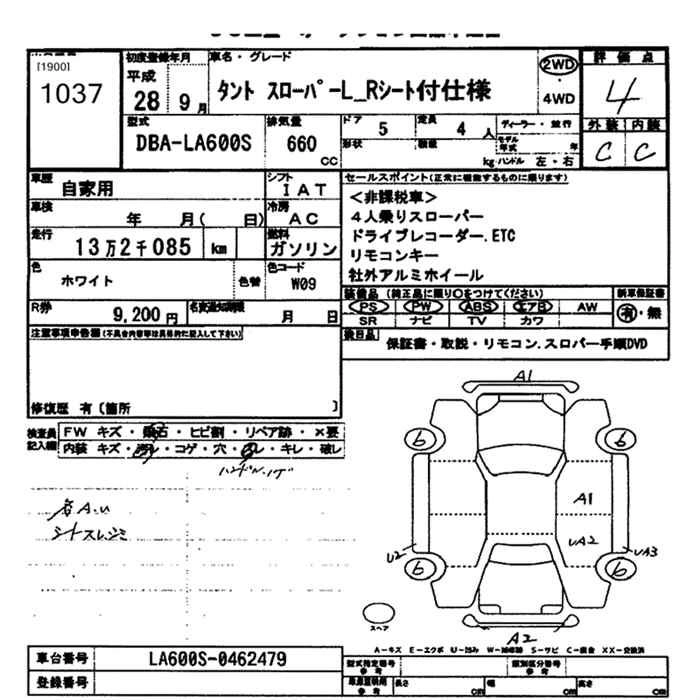 [1900]
1037
初度登録年月
平成
28 年 9月
車名・グレード
タント スローパーL_Rシート付仕様
2WD
4WD
評価点
4
外装 内装
C C
型式
DBA-LA600S
排気量
660
cc
ドア 5
定員 4 人
形状
積載
kg
ディーラー・並行
モデル年式 年
ハンドル 左・右
車歴 自家用
シフト IAT
車検 年 月( 日)
冷房 AC
走行 13万2千085 km
燃料 ガソリン
色 ホワイト 色替
色コード W09
R券 9,200円
名変通知期限 月 日
セールスポイント(正常に機能するものに限ります)
<非課税車>
4人乗りスローパー
ドライブレコーダー.ETC
リモコンキー
社外アルミホイール
装備品 (純正品に限り○をつけてください)
PS PW ABS エアB AW
SR ナビ TV カワ
新車保証書
有・無
後日品 保証書・取説・リモコン.スロパー手順DVD
注意事項申告欄(不具合内容等は具体的に記入して下さい)
修復歴 有(箇所 )
検査員記入欄
FW キズ・飛石・ヒビ割・リペア跡・×要
内装 キズ・汚レ・コゲ・穴・スレ・キレ・破レ
A1
6 6
A1
UA2
U2 UA3
6 6
スペア
A2
A-キズ E-エクボ U-凹み W-補修跡 S-サビ C-腐食 XX-交換済
車台番号 LA600S-0462479
登録番号
型式指定番号参考
類別区分番号参考
車庫証明用参考
長さ cm 幅 cm 高さ cm